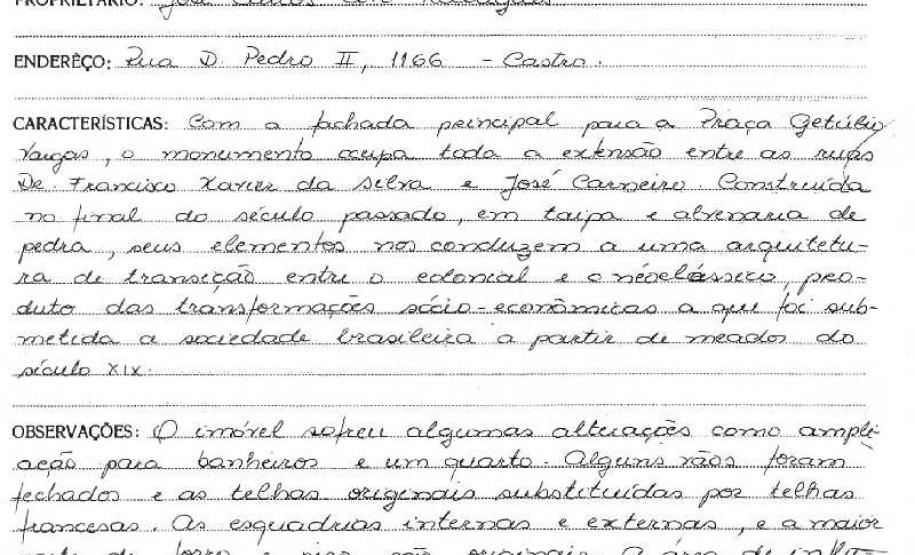 PROPRIETÁRIO: José Carlos
ENDERÊÇO: Rua D. Pedro II, 1166 - Castro.
CARACTERÍSTICAS: Com a fachada principal para a Praça Getúlio
Vargas, o monumento ocupa toda a extensão entre as ruas
Dr. Francisco Xavier da Silva e José Carneiro. Construída
no final do século passado, em taipa e alvenaria de
pedra, seus elementos nos conduzem a uma arquitetu-
ra de transição entre o colonial e o néoclássico, pro-
duto das transformações sócio-econômicas a que foi sub-
metida a sociedade brasileira a partir de meados do
século XIX.
OBSERVAÇÕES: O imóvel sofreu algumas alterações como ampli
ação para banheiros e um quarto. Alguns vãos foram
fechados e as telhas originais substituídas por telhas
francesas. As esquadrias internas e externas, e a maior
parte do forro e piso são originais. A área de